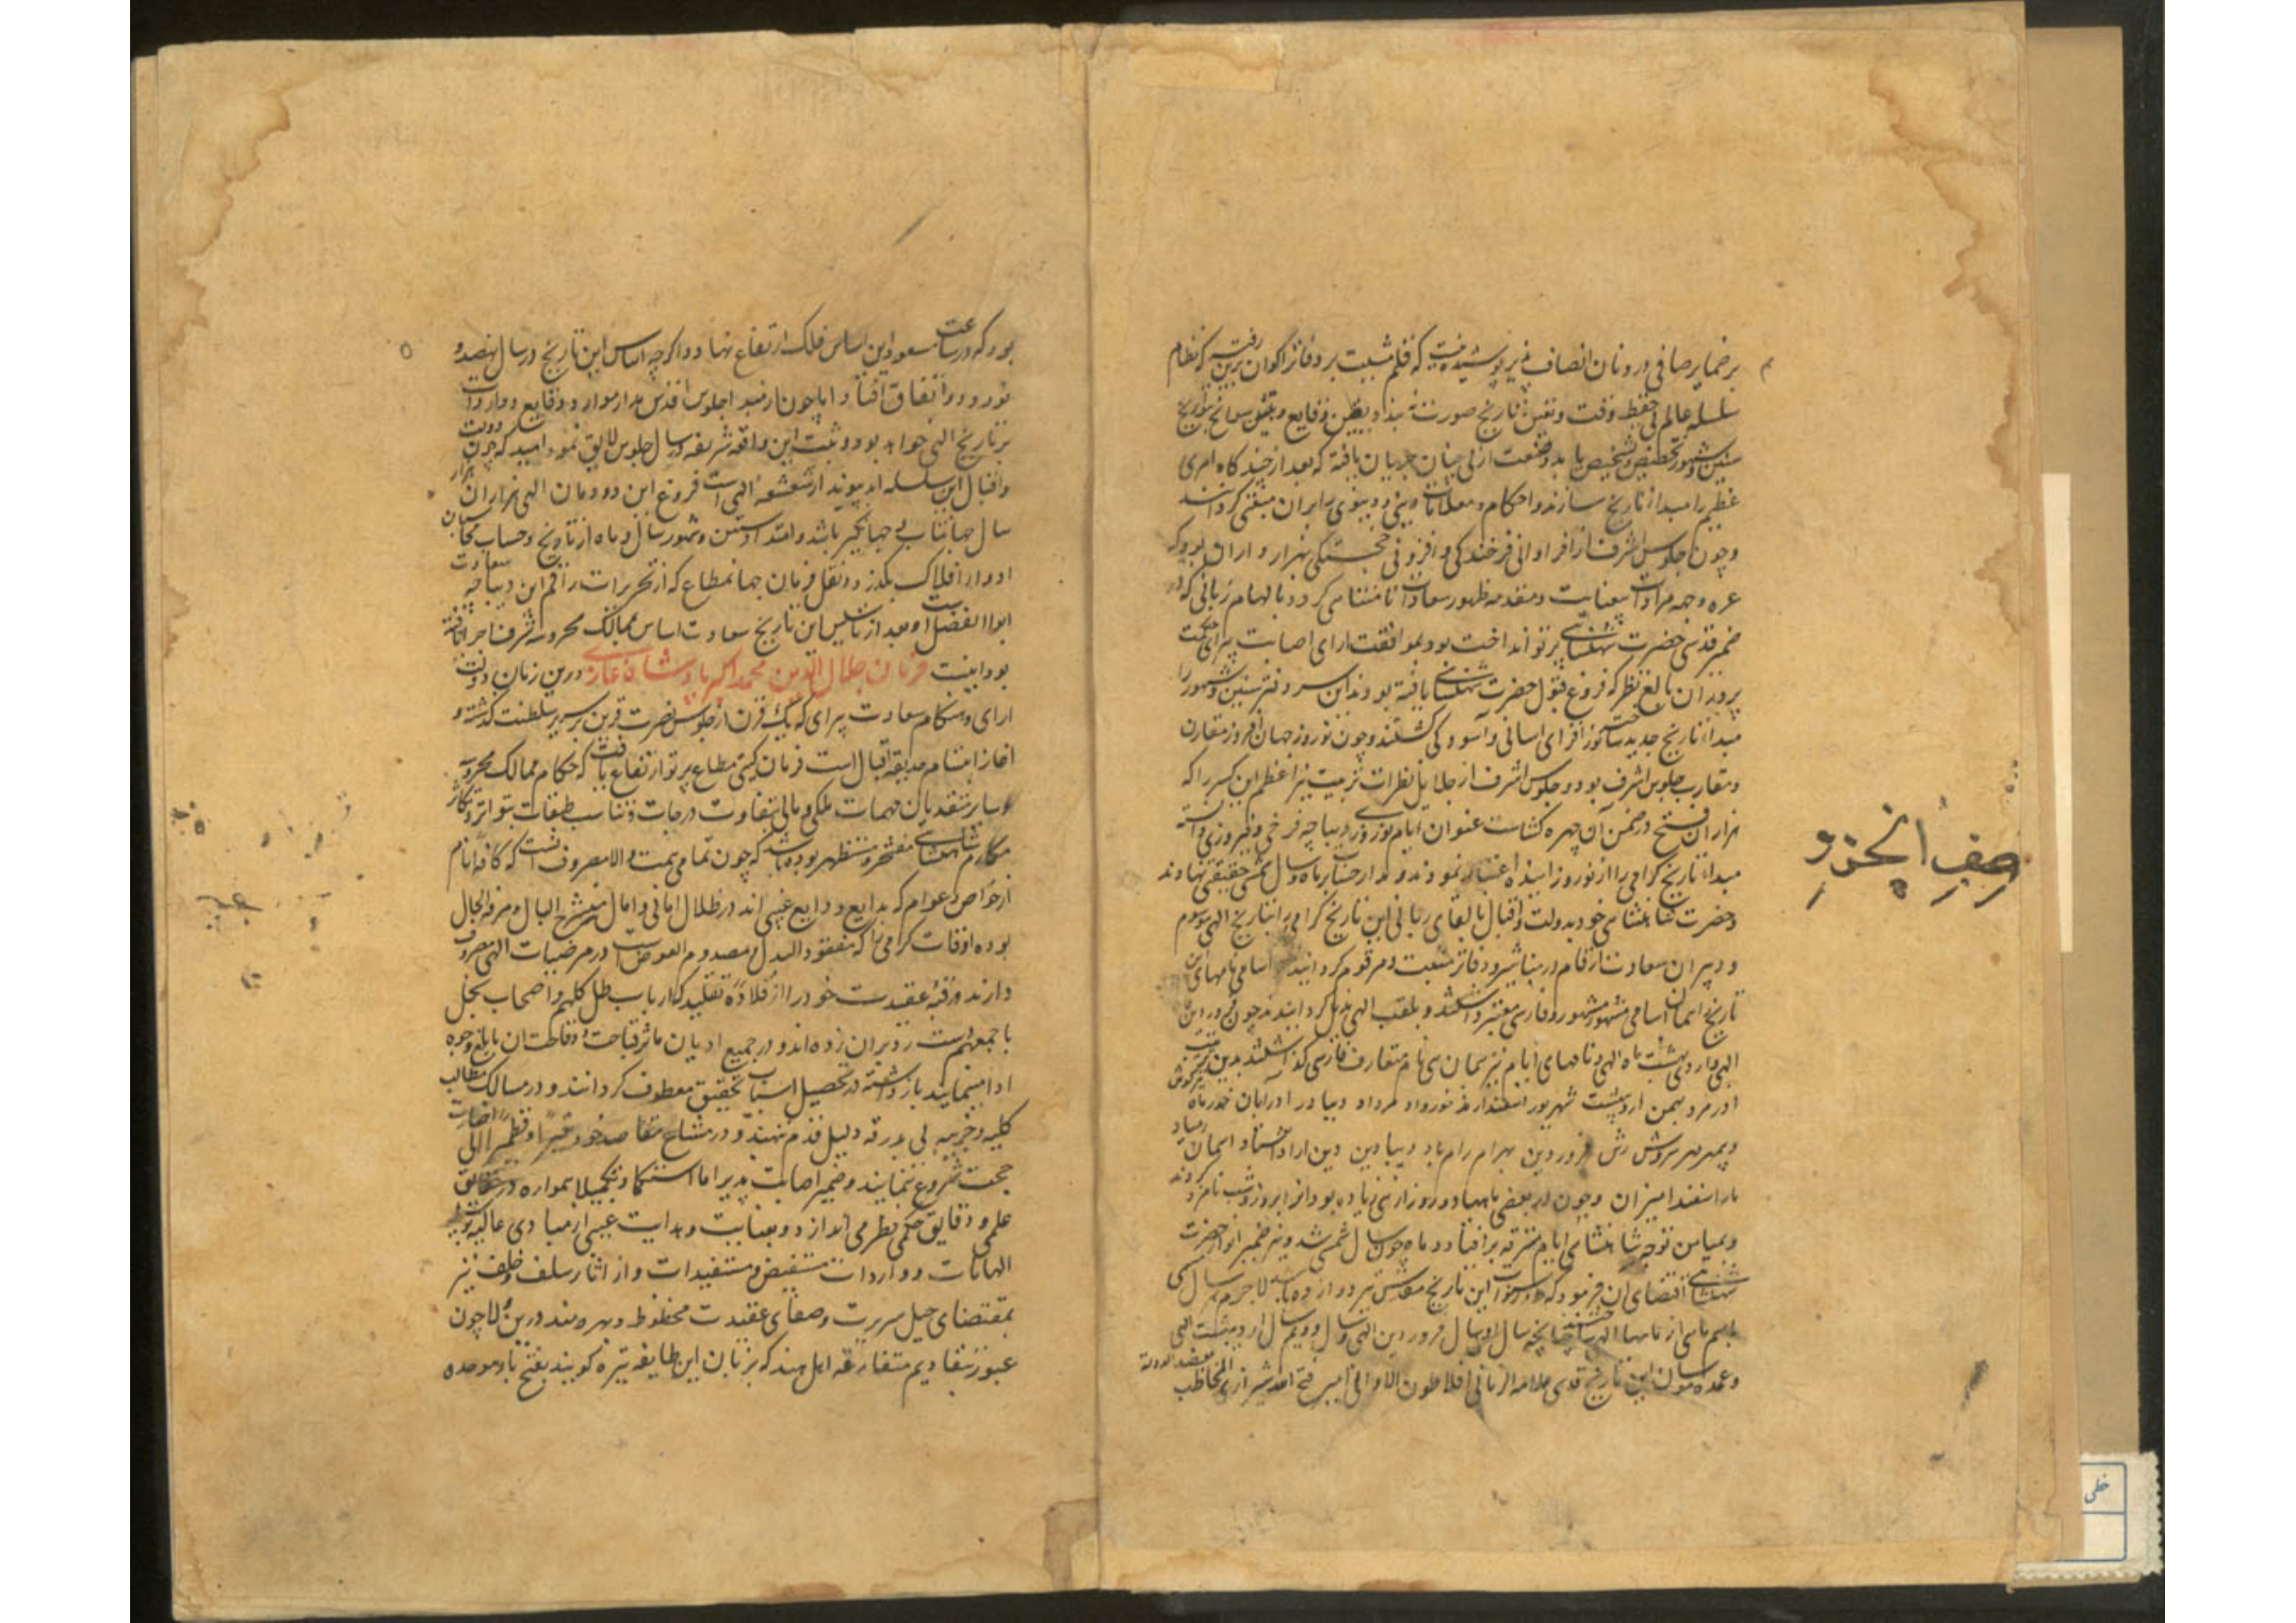 بر ضمایر صافی درونان انصاف پذیر پوشیده نیست که قلم مشیت بر دفاتر اکوان برین رفته که نظام
سلسله عالم بی حفظ وقت و تعین تاریخ صورت نه بندد و وقایع و سوانح بتواریخ
سنین و شهور تخصیص و تشخیص یابد و صنعت ازلی چنان جریان یافته که بعد از چند کاه امری
عظیم را مبدا از تاریخ سازند و احکام و معاملات دینی و دنیوی برابران مبتنی کردانند
و چون جلوس اشرف از فراوانی فرخندگی و افزونی خجستگی بهزار و اران بود که
غره وجهه مرادات بیغایت و مقدمه ظهور سعادات نامتناهی کردد بالهام ربانی که در
ضمیر قدسی حضرت شهنشاهی پرتو انداخت بود بموافقت ارای اصابت پیرای حکمت
پروران بالغ نظر که فروغ قبول حضرت شهنشاهی یافته بودند این سر دفتر سنین و شهور را
مبداء تاریخ جدید ساخت افزای اسانی و آسودکی کشتند و چون نوروز جهان افروز مقارن
و متقارب جلوس اشرف بود و جلوس اشرف از جلایل نظرات تربیت نیر اعظم این کسر را که
هزاران فتح در ضمن آن چهره کشاست عنوان ایام نوروزی و دیباچه فرخی و فیروزی دانسته
مبداء تاریخ کرامی را از نوروز ابتدا اعتبار نمودند و مدار حساب بر ماه و سال شمسی حقیقی نهادند
و حضرت شاهنشاهی خود بدولت و اقبال بالقای ربانی این تاریخ کرامی را بتاریخ الهی موسوم
و دبیران سعادت ارقام در مناشیر و دفاتر مثبت و مرقوم کردانیدند اسامی نامهای این
تاریخ همان اسامی مشهور مشهوره فارسی معتبر داشتند و بلقب الهی مذیل کردانیدند چون فروردین
الهی و اردی بهشت ماه الهی و نامهای ایام نیز همان سی نام متعارف فارسی کذاشتند بدین ترتیب
اورمزد بهمن اردیبهشت شهریور اسفندارمذ خورداد مرداد دیبادر ادر آبان خور ماه تیر کوش
دیبمهر مهر سروش رش فروردین بهرام رام باد دیبادین دین ارد اشتاد اسمان زمیاد
ماراسفند انیران و چون در بعضی ماهها دو روز از سی زیاده بود انرا بروز و شب نامزد کردند
و بمیامن توجه شاهنشاهی ایام مسترقه بر افتاد و ماه چون سال شمسی شد و نیز ضمیر انور حضرت
شهنشاهی اقتضای ان فرمود که سنوات این تاریخ مقدس نیز دوازده باشد لاجرم هر سال کی
باسم ماهی از نامها الهی ساختند چنانچه سال اول سال فروردین الهی و سال دویم سال اردیبهشت الهی
و عمده موسسان این تاریخ قدسی علامه الزمانی افلاطون الاوانی امیر فتح الله شیرازی المخاطب بعضد الدوله
بود که در ساعت مسعود این اساس فلک ارتفاع نهاد و اکرچه اساس این تاریخ در سال نهصد و
نود و دو اتفاق افتاد اما چون از مبدا جلوس اقدس مدار موارد وقایع و واردات
بر تاریخ الهی خواهد بود و ثبت این واقعه شریفه در سال جلوس لایق نمود امید که چون دولت
و اقبال این سلسله ابد پیوند از شعشعه الهی است فروغ این دودمان الهی هزاران هزار
سال جهانتاب و جهانگیر باشد و امتداد سنین و شهور سال و ماه از تاریخ و حساب محاسبان
ادوار افلاک بکذرد و نقل فرمان جهانمطاع که از تحریرات راقم این دیباچه سعادت
ابوالفضل است و بعد از تاسیس این تاریخ سعادت اساس بممالک محروسه شرف اجرا یافته
بود اینست فرمان جلال الدین محمد اکبر پادشاه غازی درین زمان دولت
ارای و هنگام سعادت پیرای که یک قرن از جلوس نصرت قرین بر سریر سلطنت کذشته و
اغاز ابتسام حدیقه اقبال است فرمان گیتی مطاع پرتو ارتفاع یافت که حکام ممالک محروسه
و سایر متصدیان مهمات ملکی و مالی بتفاوت درجات و تناسب طبقات بتواتر و تکاثر
مکارم شاهنشاهی مفتخر و مستظهر بوده باشند که چون تمامی همت والا مصروف انست که کافه انام
از خواص و عوام که بدایع ودایع غیبی اند در ظلال امانی و امال منشرح البال و مرفه الحال
بوده اوقات کرامی را که مفقود البدل و معدوم العوض است در مرضیات الهی مصروف
دارند و رقبه عقیدت خود را از قلاده تقلید که ارباب ملل کلهم و اصحاب نحل
باجمعهم دست رد بران زده اند و در جمیع ادیان ماثر قباحت و وقاحت ان بابلغ وجوه
ادا مینمایند بازداشته در تحصیل اسباب تحقیق معطوف کردانند و در مسالک مطالب
کلیه و جزییه بی بدرقه دلیل قدم ننهند و در مشارع مقاصد خود
حجت شروع ننمایند و ضمیر اصابت پذیر اما استکمالا و تکمیلا همواره در حقایق
علمی و دقایق حکمی نظر می اندازد و بعنایت و هدایت غیبی از مبادی عالیه
الهامات و واردات مستفیض و مستفید است و از اثار سلف و خلف نیز
بمقتضای جمیل سریرت و صفای عقیدت محظوظ و بهره مند درین ولا چون
عبور بتقاویم متعارفه اهل هند که بزبان این طایفه پتره کویند بفتح باء موحده
خطی